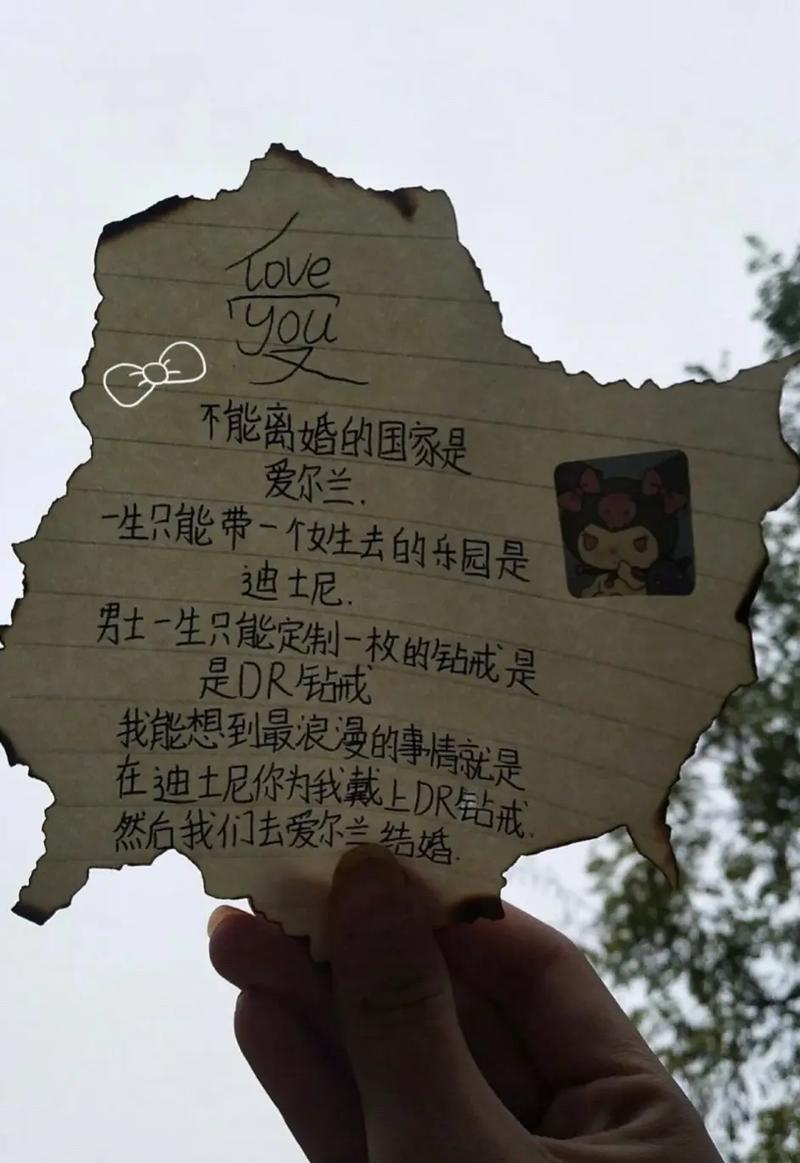 love
you
不能离婚的国家是
爱尔兰.
一生只能带一个女生去的乐园是
迪士尼.
男士一生只能定制一枚的钻戒是
是DR钻戒
我能想到最浪漫的事情就是
在迪士尼你为我戴上DR钻戒.
然后我们去爱尔兰结婚.